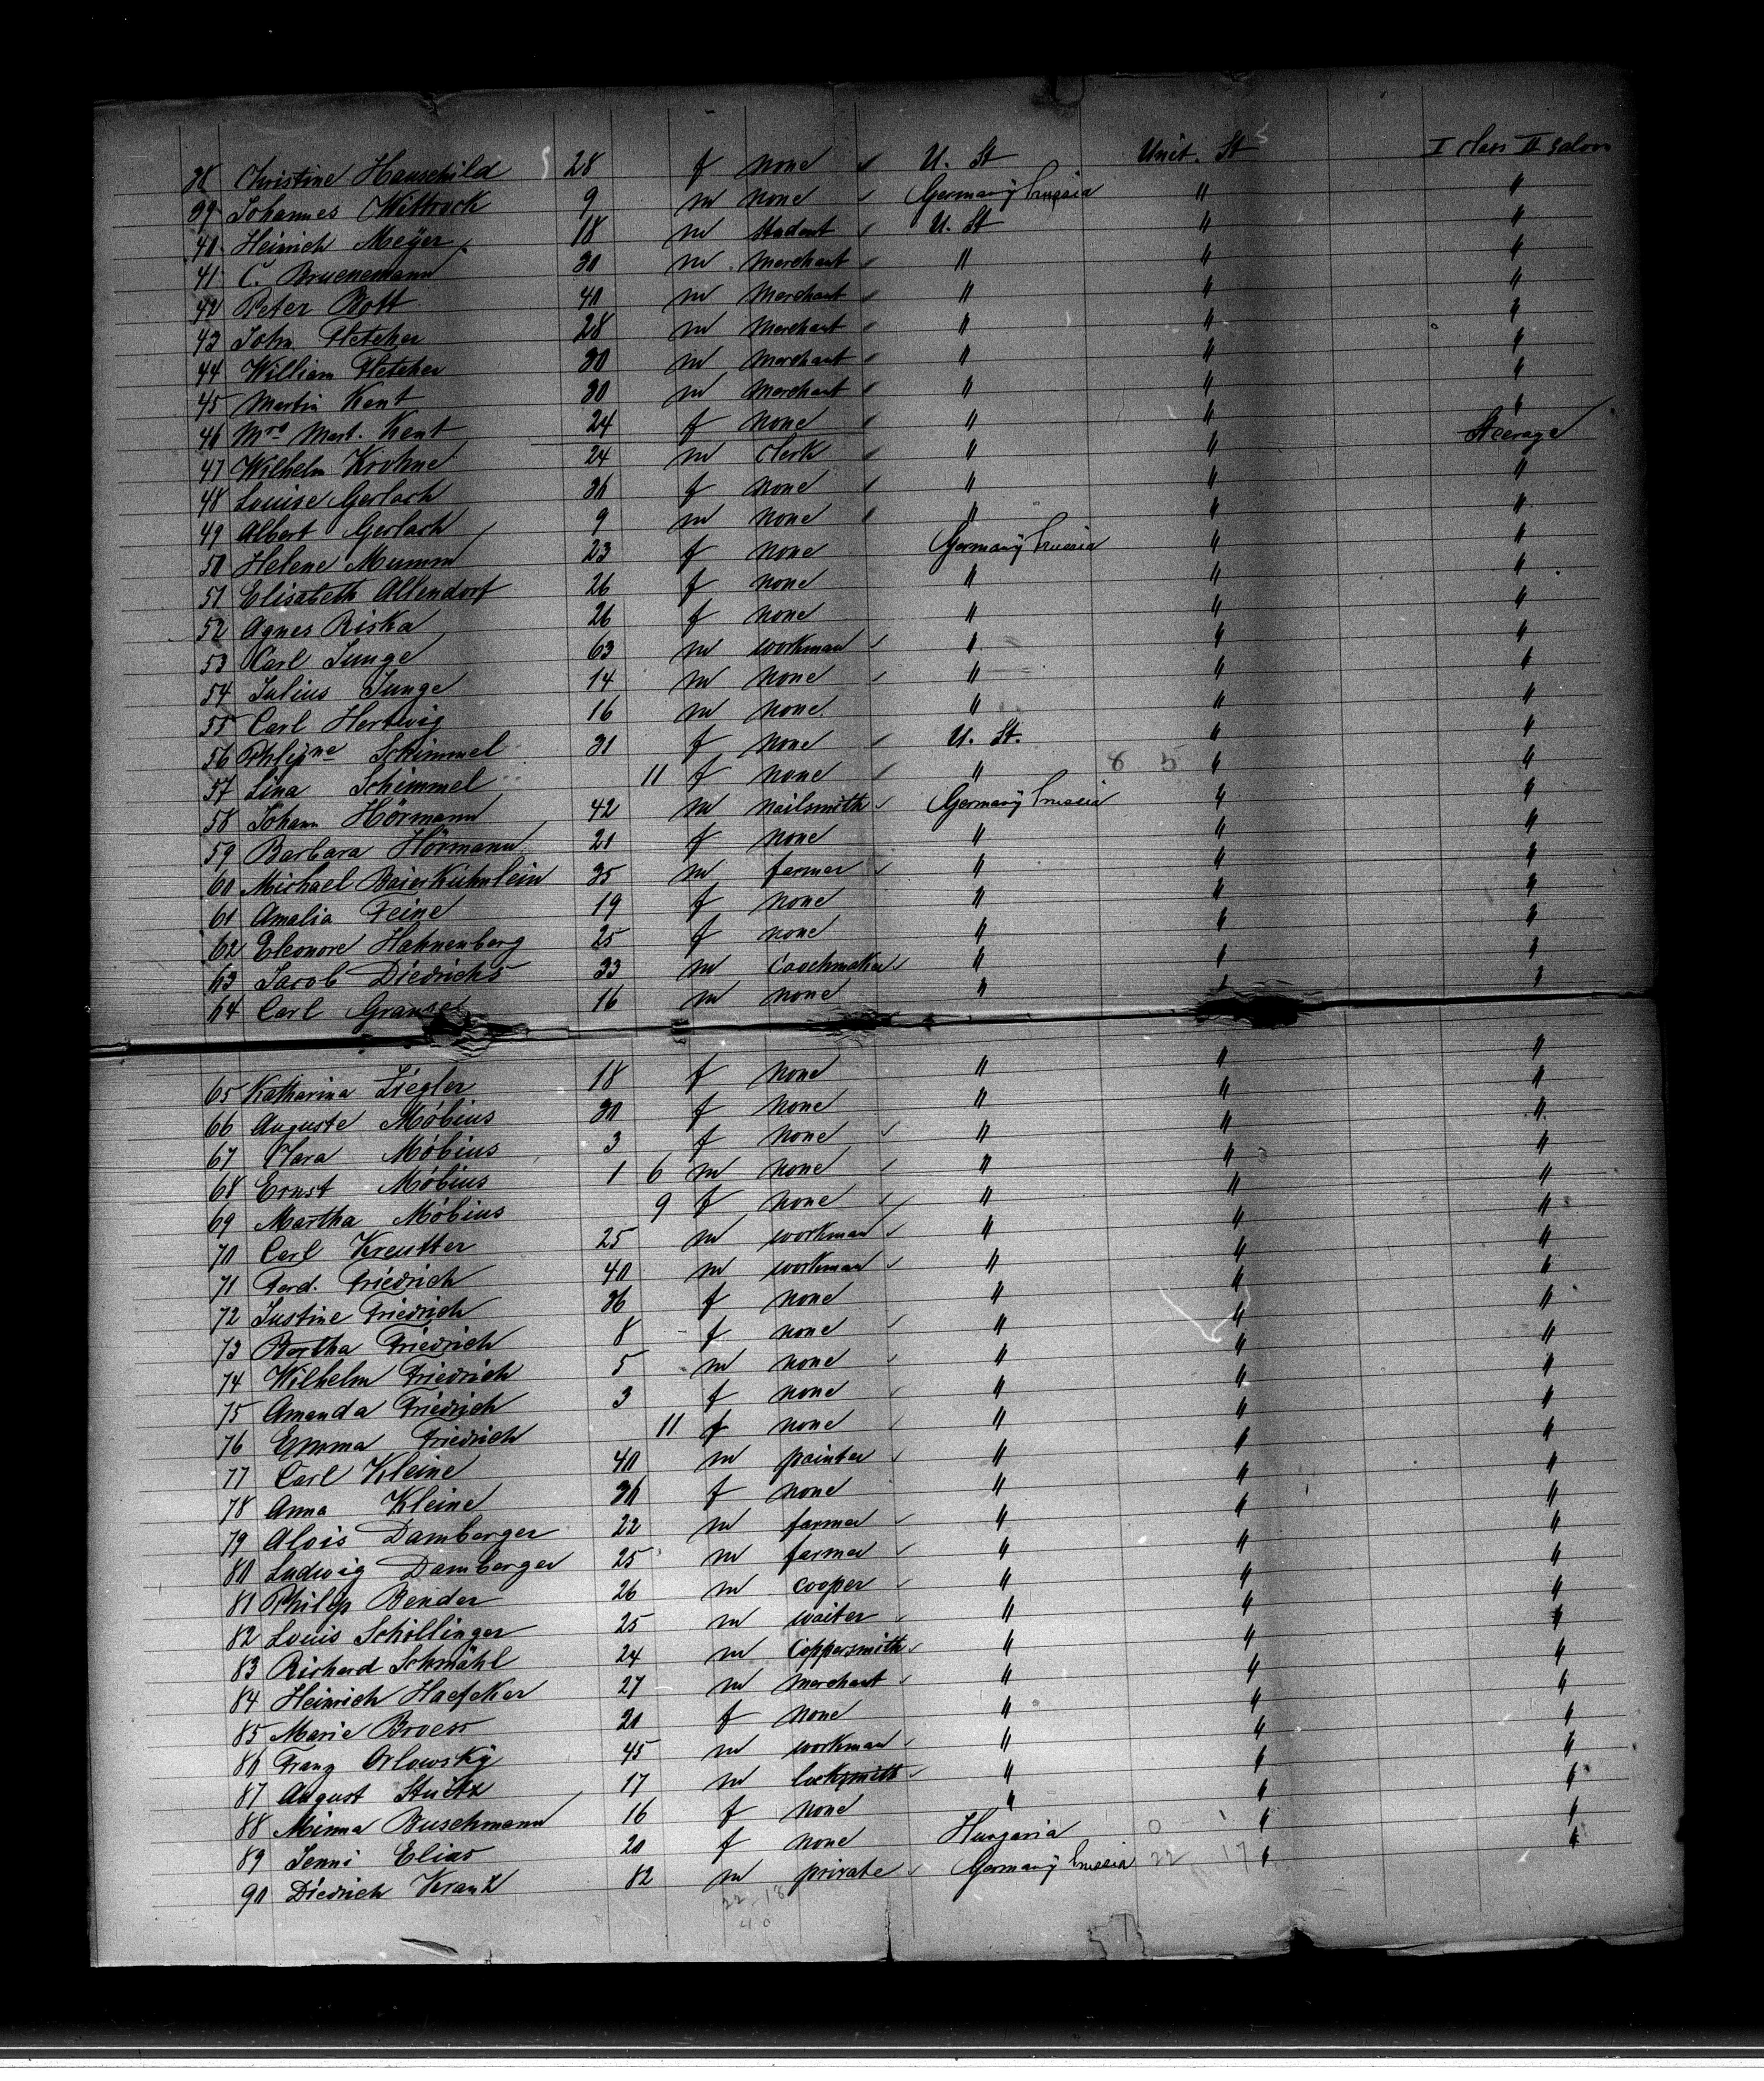 38 Christine Hauschild 28 f none U. St Unit. St I class II Saloon
39 Johannes Wittrock 9 m none Germany Prussia " "
40 Heinrich Meÿer 18 m Student U. St " "
41 C. Bruenemann 30 m Merchant " " "
42 Peter Bott 40 m Merchant " " "
43 John Fletcher 28 m Merchant " " "
44 William Fletcher 30 m Merchant " " "
45 Martin Kent 30 m Merchant " " "
46 Mrs Mart. Kent 24 f None " " "
47 Wilhelm Krohne 24 m Clerk " " Steerage
48 Louise Gerlach 36 f None " " "
49 Albert Gerlach 9 m None " " "
50 Helene Mumm 23 f None Germany Prussia " "
51 Elisabeth Allendorf 26 f none " " "
52 Agnes Riska 26 f none " " "
53 Carl Junge 63 m workman " " "
54 Julius Junge 14 m none " " "
55 Carl Hertwig 16 m none " " "
56 Philipne Schimmel 31 f none U. St. " "
57 Lina Schimmel 11 f none " 8 5 " "
58 Johann Hörmann 42 m nailsmith Germany Prussia " "
59 Barbara Hörmann 21 f none " " "
60 Michael Baierkuhnlein 35 m farmer " " "
61 Amalia Feine 19 f none " " "
62 Eleonore Hahnenberg 25 f none " " "
63 Jacob Diedrichs 33 m Coachmaker " " "
64 Carl 16 m none " " "
65 Katharina Ziegler 18 f none " " "
66 Auguste Möbius 30 f none " " "
67 Clara Möbius 3 f none " " "
68 Ernst Möbius 1 6 m none " " "
69 Martha Möbius 9 f none " " "
70 Carl Kreutter 25 m workman " " "
71 Ferd. Friedrich 40 m workman " " "
72 Justine Friedrich 36 f none " " "
73 Bertha Friedrich 8 f none " " "
74 Wilhelm Friedrich 5 m none " " "
75 Amanda Friedrich 3 f none " " "
76 Emma Friedrich 11 f none " " "
77 Carl Kleine 40 m painter " " "
78 Anna Kleine 36 f none " " "
79 Alois Damberger 22 m farmer " " "
80 Ludwig Damberger 25 m farmer " " "
81 Philip Bender 26 m cooper " " "
82 Louis Schöllinger 25 m waiter " " "
83 Richard Schmähl 24 m Coppersmith " " "
84 Heinrich Haefcker 27 m merchant " " "
85 Marie Broess 21 f none " " "
86 Franz Orlowskÿ 45 m workman " " "
87 August 17 m locksmith " " "
88 Minna Buschmann 16 f none " " "
89 Jenni Elias 20 f none Hungaria 0 " "
90 Diedrich Krank 82 m private Germany Prussia 22 17 " "
22 18
40